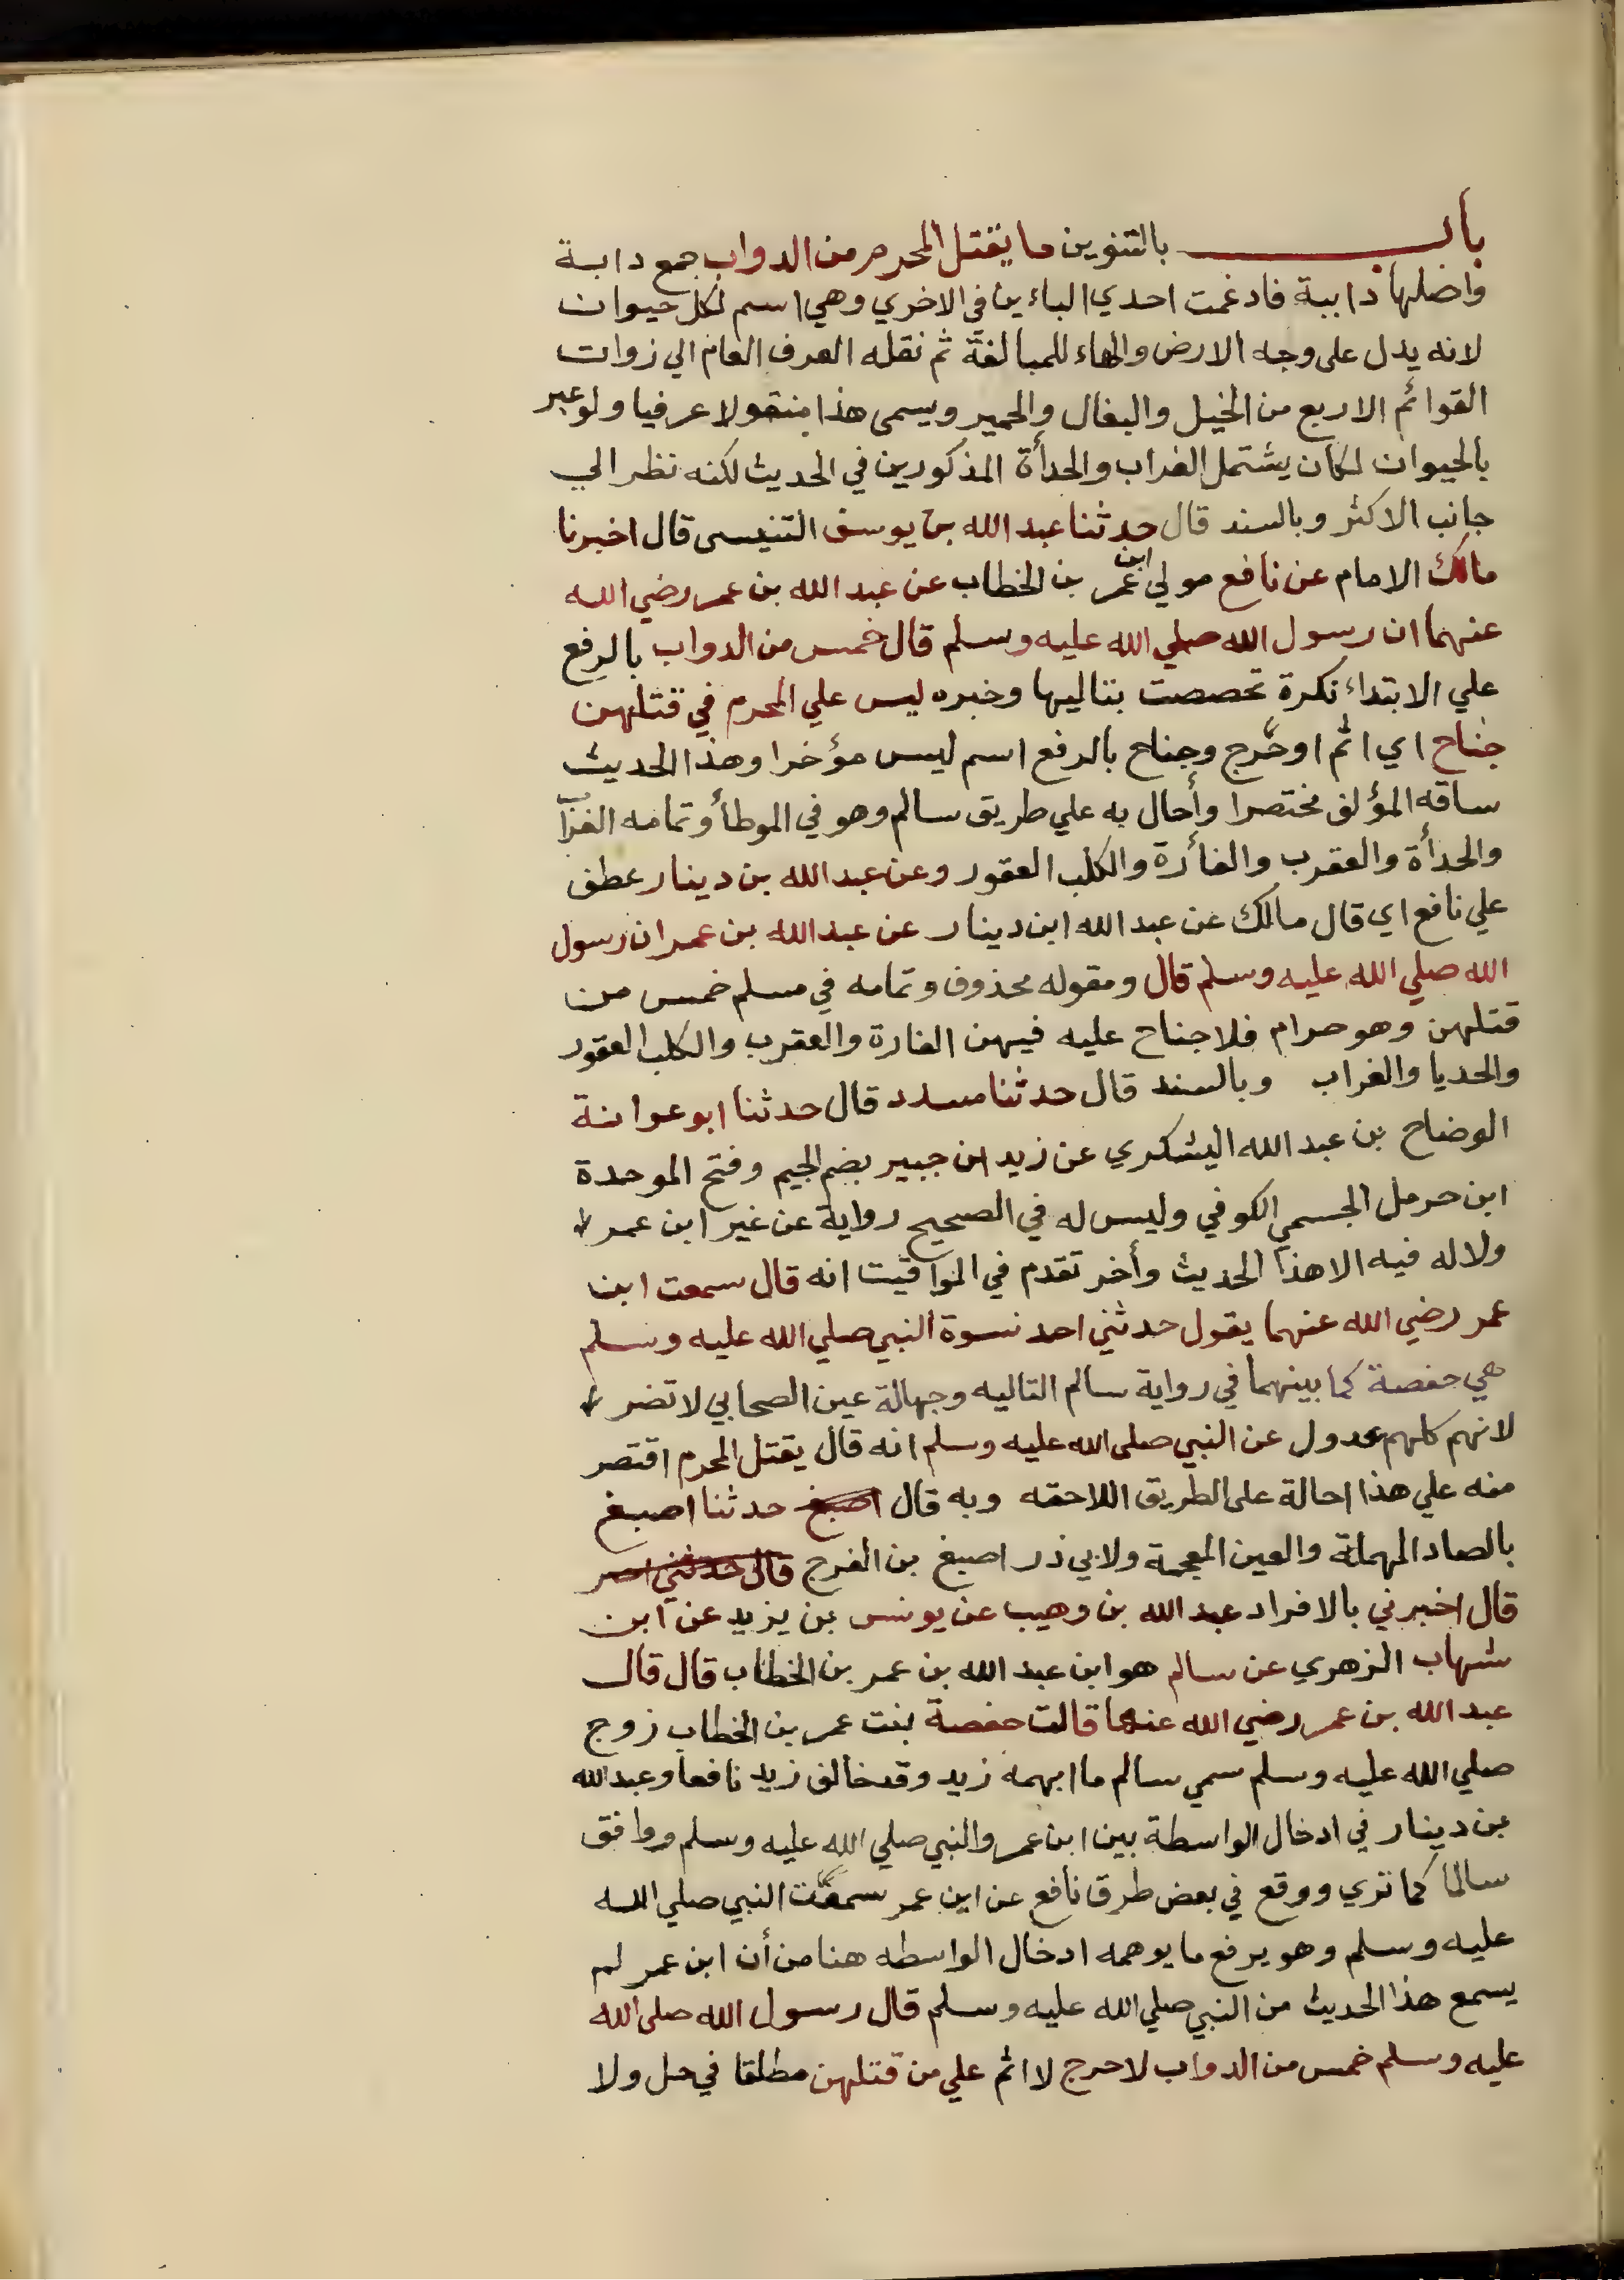 باب بالتنوين ما يقتل المحرم من الدواب جمع دابة
واصلها داببة فادغمت احدي الباءين في الاخري وهي اسم لكل حيوان
لانه يدل على وجه الارض والهاء للمبالغة ثم نقله العرف العام الي زوات
القوائم الاربع من الخيل والبغال والحمير ويسمى هذا منقولا عرفيا ولو عبر
بالحيوان لكان يشتمل الغراب والحدأة المذكورين في الحديث لكنه نظر الي
جانب الاكثر وبالسند قال حدثنا عبد الله بن يوسف التنيسى قال اخبرنا
مالك الامام عن نافع مولي ابن عمر بن الخطاب عن عبد الله بن عمر رضي الله
عنهما ان رسول الله صلي الله عليه وسلم قال خمس من الدواب بالرفع
علي الابتداء نكرة تحصصت بتاليها وخبره ليس علي المحرم في قتلهن
جناح اي اثم او حرج وجناح بالرفع اسم ليس مؤخرا وهذا الحديث
ساقه المؤلف مختصرا وأحال به علي طريق سالم وهو في الموطأ وتمامه الغراب
والحدأة والعقرب والفأرة والكلب العقور وعن عبد الله بن دينار عطف
علي نافع اي قال مالك عن عبد الله ابن دينار عن عبد الله بن عمر ان رسول
الله صلي الله عليه وسلم قال ومقوله محذوف وتمامه في مسلم خمس من
قتلهن وهو حرام فلا جناح عليه فيهن الفارة والعقرب والكلب العقور
والحديا والغراب وبالسند قال حدثنا مسدد قال حدثنا ابو عوانة
الوضاح بن عبد الله اليشكري عن زيد ابن جبير بضم الجيم وفتح الموحدة
ابن حرمل الجسمي الكوفي وليس له في الصحيح رواية عن غير ابن عمر
ولا له فيه الا هذا الحديث وأخر تقدم في المواقيت انه قال سمعت ابن
عمر رضي الله عنهما يقول حدثني احد نسوة النبي صلي الله عليه وسلم
هي حفصة كما بينهما في رواية سالم التاليه وجهالة عين الصحابي لا تضر
لانهم كلهم عدول عن النبي صلى الله عليه وسلم انه قال يقتل المحرم اقتصر
منه علي هذا احالة على الطريق اللاحقه وبه قال اصبغ حدثنا اصبغ
بالصاد المهملة والعين المعجمة ولابي ذر اصبغ بن الفرج قال حدثني
قال اخبرني بالافراد عبد الله بن وهيب عن يونس بن يزيد عن ابن
شهاب الزهري عن سالم هو ابن عبد الله بن عمر بن الخطاب قال قال
عبد الله بن عمر رضي الله عنهما قالت حفصة بنت عمر بن الخطاب زوج
صلي الله عليه وسلم سمي سالم ما ابهمه زيد وقد خالف زيد نافعا وعبد الله
بن دينار في ادخال الواسطة بين ابن عمر والنبي صلي الله عليه وسلم ووافق
سالما كما تري ووقع في بعض طرق نافع عن ابن عمر سمعت النبي صلي الله
عليه وسلم وهو يرفع ما يوهمه ادخال الواسطه هنا من أن ابن عمر لم
يسمع هذا الحديث من النبي صلي الله عليه وسلم قال رسول الله صلى الله
عليه وسلم خمس من الدواب لا حرج لا اثم علي من قتلهن مطلقا في حل ولا